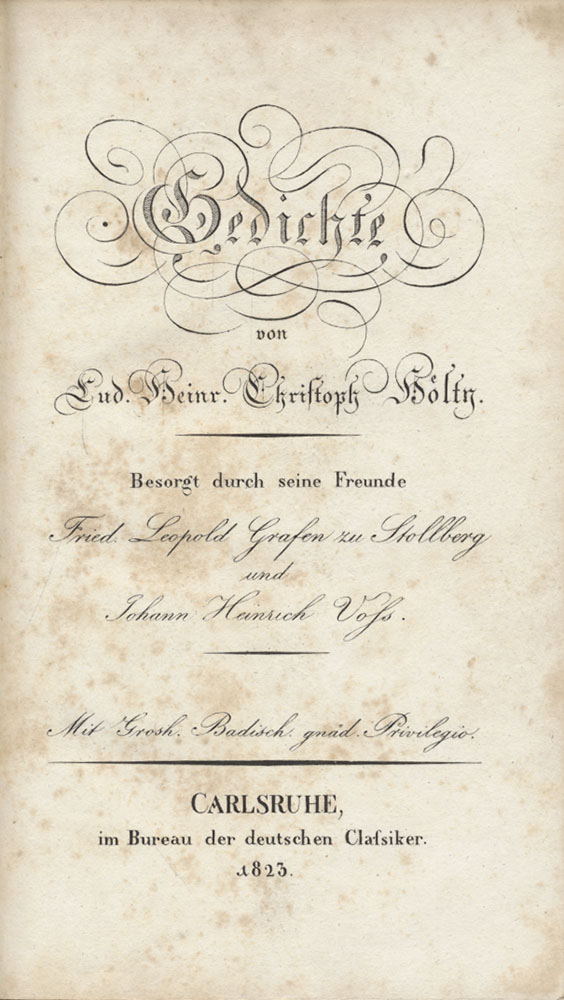 Gedichte
von
Lud. Heinr. Chriſtoph Hölty.
Besorgt durch seine Freunde
Fried. Leopold Grafen zu Stollberg
und
Johann Heinrich Voſs.
Mit Grosh. Badisch. gnäd. Privilegio.
CARLSRUHE,
im Bureau der deutschen Claſsiker.
1823.